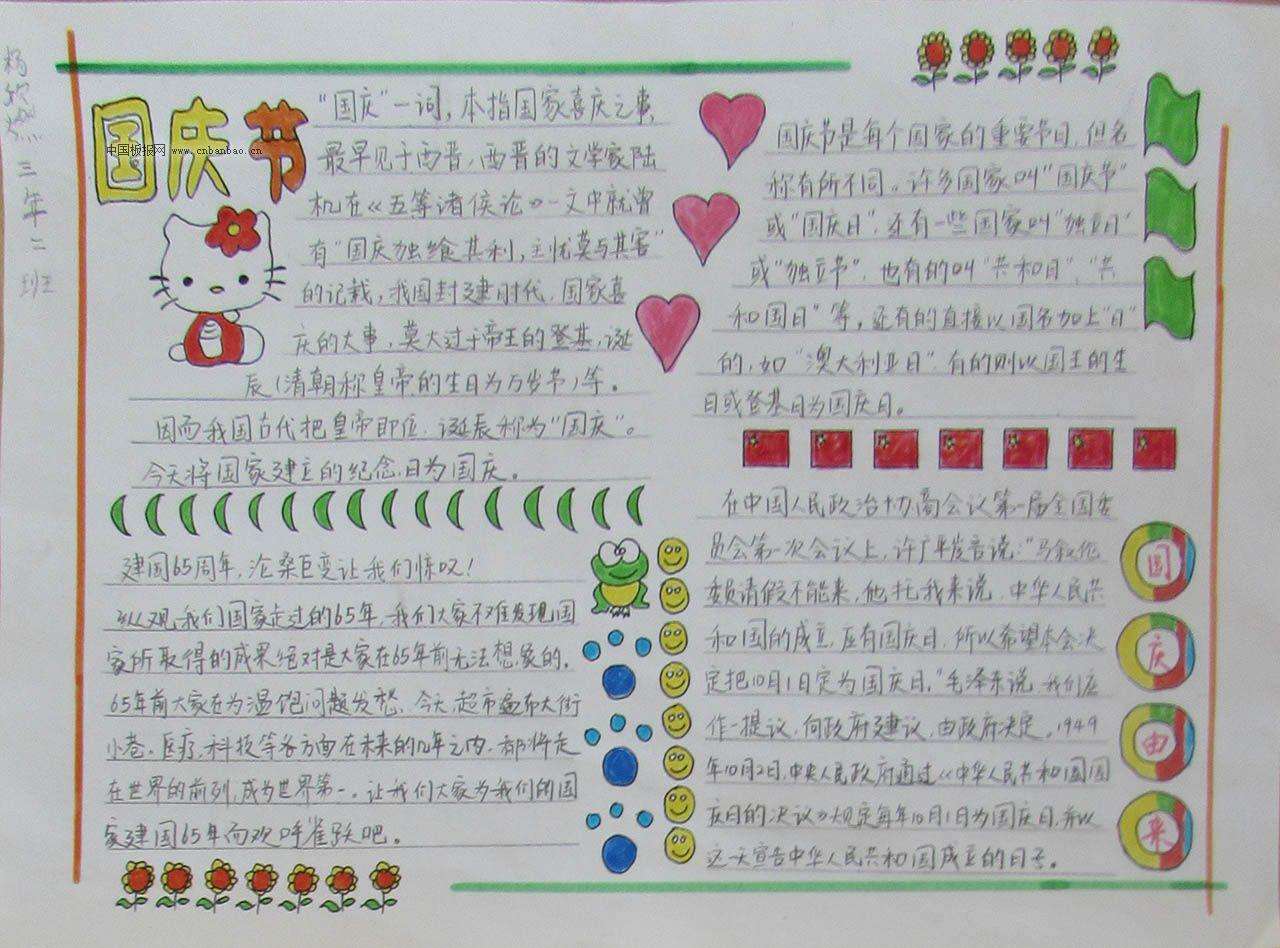 杨
三年二班
国庆节
中国板报网 www.cnbanbao.cn
“国庆”一词，本指国家喜庆之事，
最早见于西晋，西晋的文学家陆
机在《五等诸侯论》一文中就曾
有“国庆独飨其利，主忧莫与其害”
的记载，我国封建时代、国家喜
庆的大事，莫大过于帝王的登基，诞
辰（清朝称皇帝的生日为万岁节）等。
因而我国古代把皇帝即位、诞辰称为“国庆”。
今天将国家建立的纪念日为国庆。
建国65周年，沧桑巨变让我们惊叹！
纵观我们国家走过的65年，我们大家不难发现国
家所取得的成果绝对是大家在65年前无法想象的，
65年前大家在为温饱问题发愁、今天，超市遍布大街
小巷。医疗，科技等各方面在未来的几年之内，都将走
在世界的前列，成为世界第一。让我们大家为我们的国
家建国65年而欢呼雀跃吧。
国庆节是每个国家的重要节日，但名
称有所不同。许多国家叫“国庆节”
或“国庆日”，还有一些国家叫“独立日”
或“独立节”，也有的叫“共和日”、“共
和国日”等，还有的直接以国名加上“日”
的，如“澳大利亚日”，有的则以国王的生
日或登基日为国庆日。
在中国人民政治协商会议第一届全国委
员会第一次会议上，许广平发言说：“马叙伦
委员请假不能来，他托我来说，中华人民共
和国的成立，应有国庆日，所以希望本会决
定把10月1日定为国庆日。”毛泽东说，我们应
作一提议，向政府建议，由政府决定。1949
年10月2日，中央人民政府通过《中华人民共和国国
庆日的决议》规定每年10月1日为国庆日，并以
这一天宣告中华人民共和国成立的日子。
国
庆
由
来